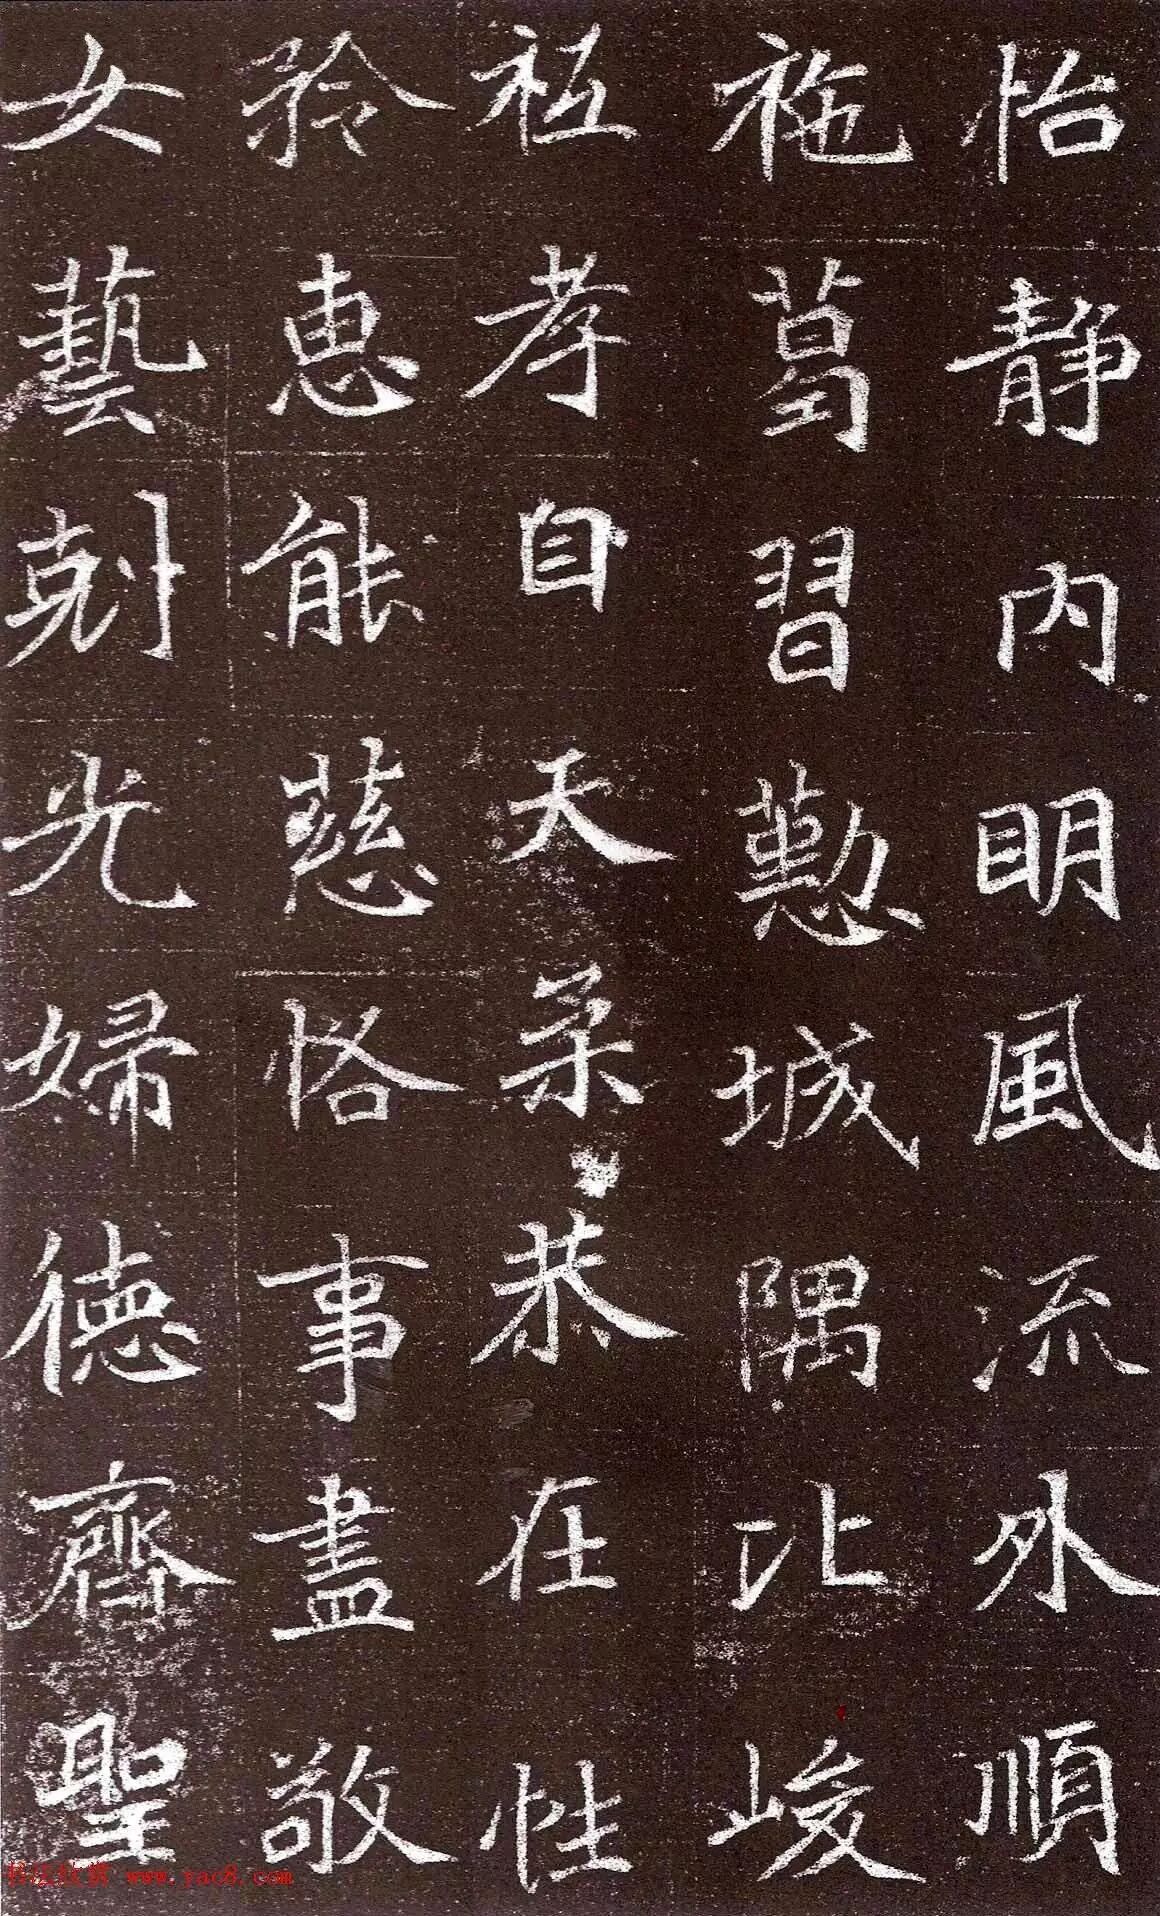 怡静内明風流外順
袘葛習懃城隅比峻
祗孝自天柔恭在性
矜恵能慈恪事盡敬
女藝剋光婦徳齊聖
书法欣赏 www.yac8.com